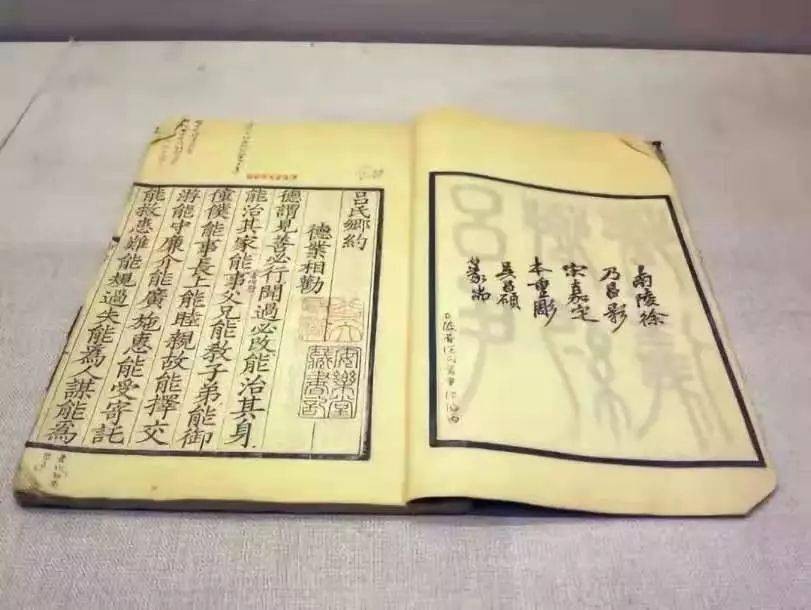 南陵徐
乃昌影
宋嘉定
本重彫
吳昌碩
篆耑
呂氏鄉約
德業相勸
德謂見善必行聞過必改能治其身
能治其家能事父兄能教子弟能御
僮僕能事長上能睦親故能擇交
游能守廉介能廣施惠能受寄託
能救患難能規過失能爲人謀能爲
安樂堂
藏書記